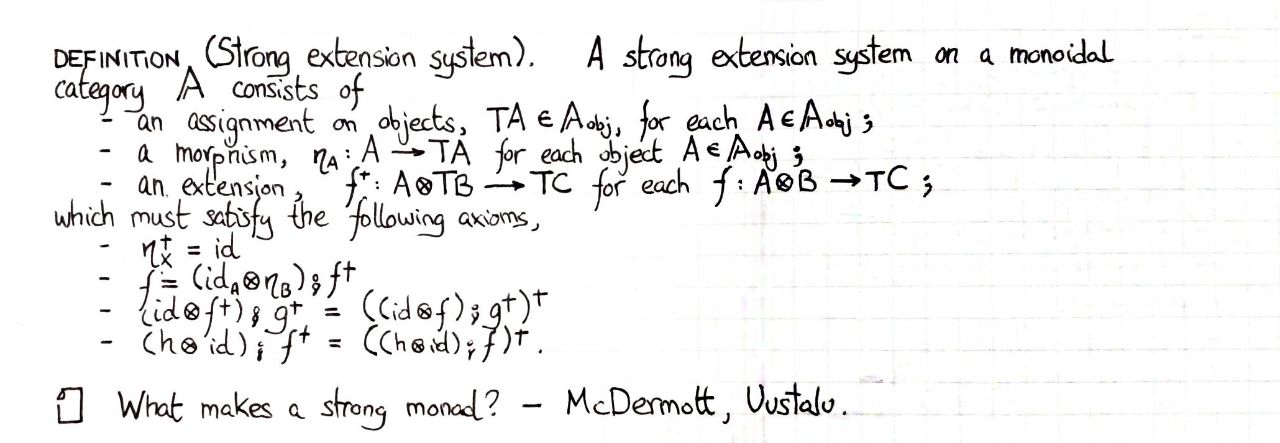 DEFINITION (Strong extension system). A strong extension system on a monoidal
category 𝔸 consists of
- an assignment on objects, TA ∈ 𝔸obj, for each A ∈ 𝔸obj ;
- a morphism, η_A : A → TA for each object A ∈ 𝔸obj ;
- an extension, f⁺ : A⊗TB → TC for each f : A⊗B → TC ;
which must satisfy the following axioms,
- η_X⁺ = id
- f = (id_A⊗η_B) ⨾ f⁺
- (id⊗f⁺) ⨾ g⁺ = ((id⊗f) ⨾ g⁺)⁺
- (h⊗id) ⨾ f⁺ = ((h⊗id) ⨾ f)⁺.
What makes a strong monad? – McDermott, Uustalu.